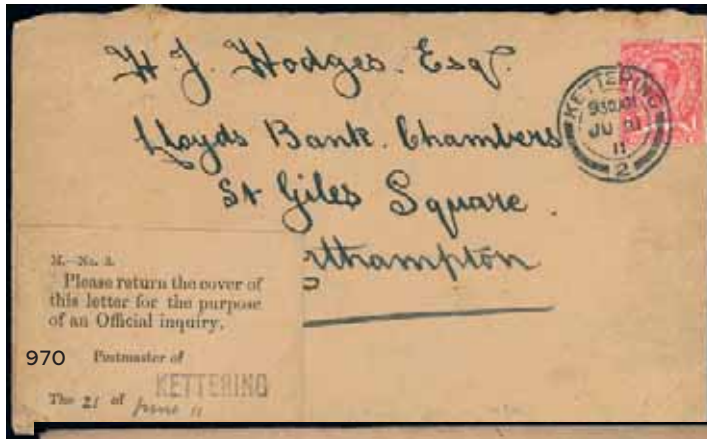 H. J. Hodges. Esqr.
Lloyds Bank. Chambers
St Giles Square.
rthampton
KETTERING
9 30 AM
JU
11
2
M.—No. 3.
Please return the cover of
this letter for the purpose
of an Official inquiry.
970
Postmaster of
KETTERING
The 21 of June 11